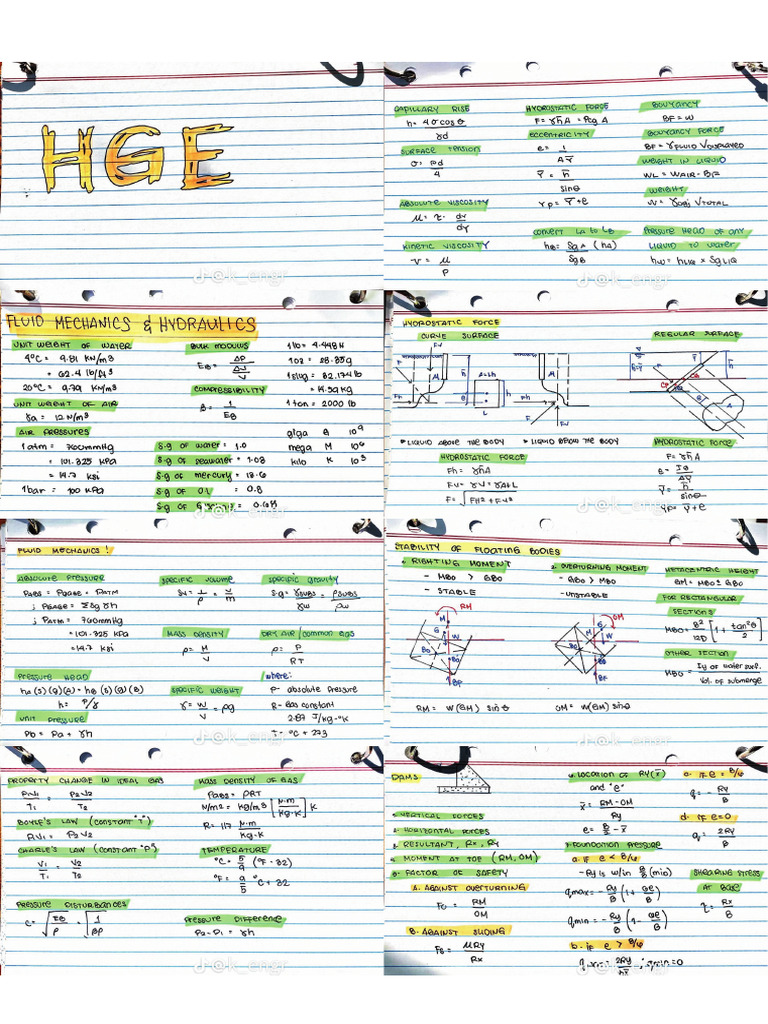 HGE
CAPILLARY RISE
h = 4σcosθ
γd
SURFACE TENSION
σ = pd
4
ABSOLUTE VISCOSITY
μ = τ · dv
dy
KINETIC VISCOSITY
V = μ
ρ
HYDROSTATIC FORCE
F = γh̄A = PcgA
ECCENTRICITY
e = I
AȲ
Ȳ = h̄
sinθ
Yp = Ȳ + e
CONVERT LA to LB
hB = SgA (hA)
SgB
BOUYANCY
BF = W
BOUYANCY FORCE
BF = γFLUID VDISPLAYED
WEIGHT IN LIQUID
WL = WAIR - BF
WEIGHT
W = γOBJ VTOTAL
Pressure Head of any
LIQUID to water
hw = hLIQ × SgLIQ
d-@k_engr
FLUID MECHANICS & HYDRAULICS
UNIT WEIGHT OF WATER
4°C = 9.81 KN/m3
= 62.4 lb/ft3
20°C = 9.79 KN/m3
UNIT WEIGHT OF AIR
γa = 12 N/m3
AIR PRESSURES
1 atm = 760mmHg
= 101.325 KPa
= 14.7 ksi
1 bar = 100 KPa
BULK MODULUS
EB = ΔP
ΔV
V
COMPRESSIBILITY
β = 1
EB
S.g of water = 1.0
S.g of seawater = 1.03
S.g of mercury = 13.6
S.g of Oil = 0.8
1 lb = 4.448N
1 slug = 32.174 lb
= 14.59 kg
1 ton = 2000 lb
giga G 10⁹
mega M 10⁶
kilo K 10³
d-@k_engr
HYDROSTATIC FORCE
CURVE SURFACE
REGULAR SURFACE
• LIQUID ABOVE THE BODY
• LIQUID BELOW THE BODY
HYDROSTATIC FORCE
Fh = γh̄A
Fv = γV = γAHL
F = √FH² + Fv²
HYDROSTATIC FORCE
F = γh̄A
e = Ig
AȲ
Ȳ = h̄
sinθ
YP = Ȳ + e
d-@k_engr
FLUID MECHANICS!
ABSOLUTE PRESSURE
PABS = PGAGE = PATM
; PGAGE = ΣSg γh
; PATM = 760mmHg
= 101.325 KPa
= 14.7 KSi
PRESSURE HEAD
hA (S)(g)(A) = hB (S)(g)(B)
h = P/γ
UNIT PRESSURE
Pb = Pa + γh
SPECIFIC VOLUME
Sv = 1 = V
ρ m
MASS DENSITY
ρ = M
V
SPECIFIC WEIGHT
γ = W = ρg
V
Specific gravity
S.g = γSUBS = ρSUBS
γw ρw
DRY AIR / COMMON GAS
ρ = P
RT
where:
P - absolute Pressure
R - Gas constant
287 J/kg-°K
T - °C + 273
d-@k_engr
STABILITY OF FLOATING BODIES
1. RIGHTING MOMENT
- MBO > GBO
- STABLE
RM = W(GM) sinθ
2. OVERTURNING MOMENT
- GBO > MBO
- UNSTABLE
OM = W(GM) sinθ
METACENTRIC HEIGHT
GM = MBO ± GBO
FOR RECTANGULAR
SECTIONS
MBO = B² [1 + tan²θ]
12D 2
OTHER SECTION
MBO = Iy of water surf.
Vol. of submerge
d-@k_engr
PROPERTY CHANGE IN IDEAL GAS
P1V1 = P2V2
T1 T2
BOYLE'S LAW (CONSTANT "T")
P1V1 = P2V2
CHARLE'S LAW (CONSTANT "P")
V1 = V2
T1 T2
PRESSURE DISTURBANCES
C = √EB = √1
ρ βρ
MASS DENSITY OF GAS
PABS = ρRT
N/m2 = kg/m3 [N·m / kg·K] K
R = 117 N·m
kg·K
TEMPERATURE
°C = 5 (°F - 32)
9
°F = 9 °C + 32
5
PRESSURE DIFFERENCE
P2 - P1 = γh
d-@k_engr
DAMS
1. VERTICAL FORCES
2. HORIZONTAL FORCES
3. RESULTANT, Rx, Ry
4. MOMENT AT TOE (RM, OM)
5. FACTOR OF SAFETY
A. AGAINST OVERTURNING
FO = RM
OM
B. AGAINST SLIDING
FS = μRY
Rx
6. LOCATION OF RY (x̄)
and "e"
x̄ = RM - OM
Ry
e = B - x̄
2
7. FOUNDATION PRESSURE
a. IF e < B/6
- RY is w/in B/3 (mid)
qmax = - Ry (1 + 6e)
B B
qmin = - Ry (1 - 6e)
B B
b. IF e > B/6
; qmin = 0
c. IF e = B/6
d. IF e = 0
SHEARING STRESS
AT BASE
τ = Rx
B
d-@k_engr